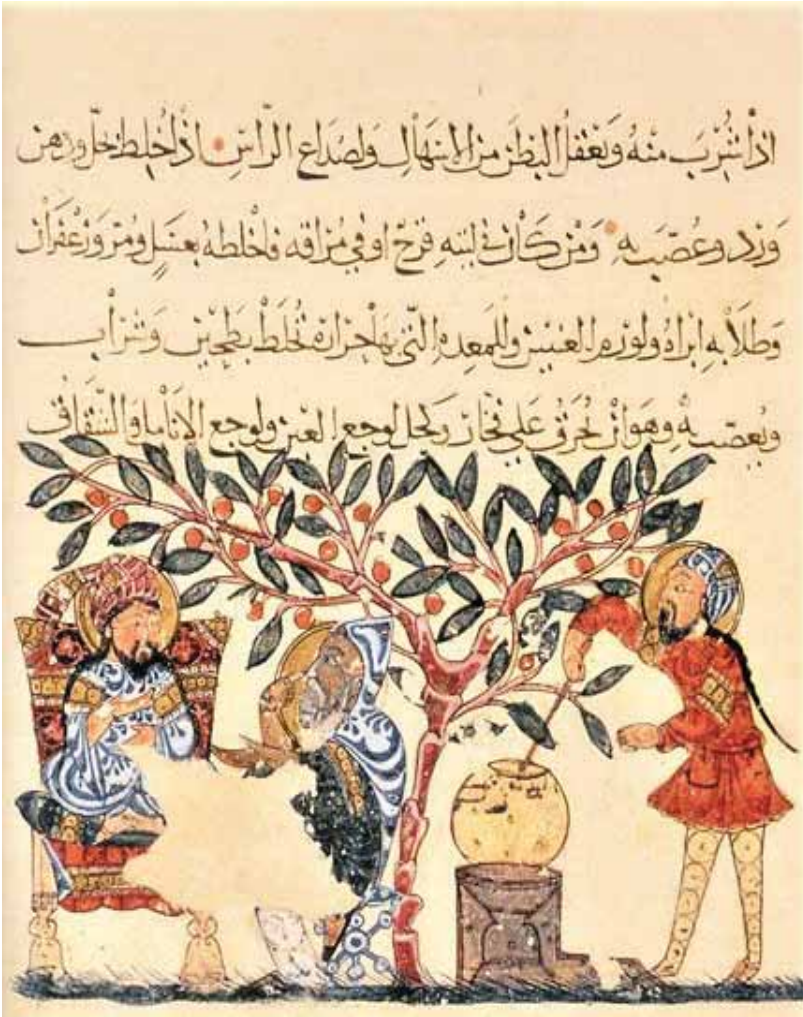 اذا شرب منه وتعقل البطن من الاسهال ولصداع الراس اذا خلط بخل ودهن
ورد وعصب به ومن كان في لثته قرح او في مراقه فاخلطه بعسل ومر وزعفران
وطلا به ابراه ولورم العينين وللمعده التي بها حراره تخلط بطحين وشراب
ويعصب به وهو ان يحرق على فخار وكحل لوجع العين ولوجع